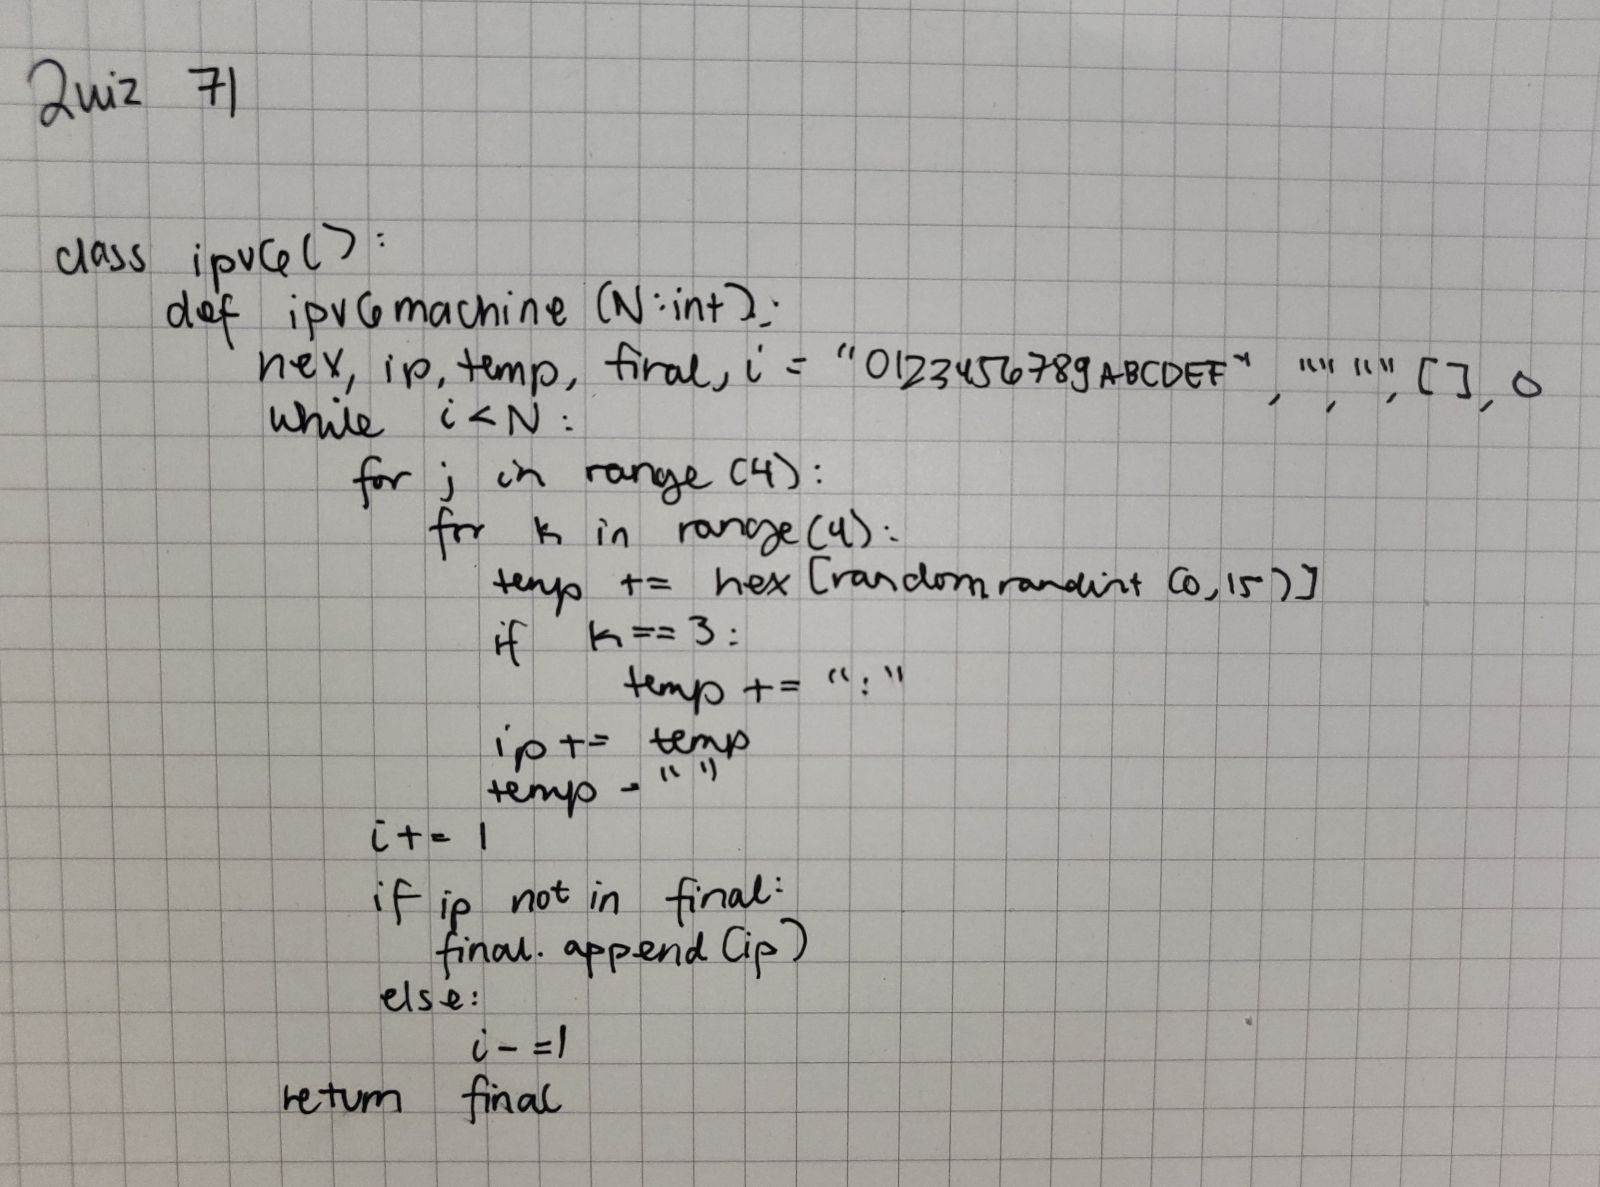 Quiz 71
class ipv6():
def ipv6machine (N:int):
hex, ip, temp, final, i = "0123456789ABCDEF", "", "", [], 0
while i<N:
for j in range (4):
for k in range(4):
temp += hex [random.randint (0,15)]
if k==3:
temp += ":"
ip += temp
temp = ""
i += 1
if ip not in final:
final.append(ip)
else:
i-=1
return final